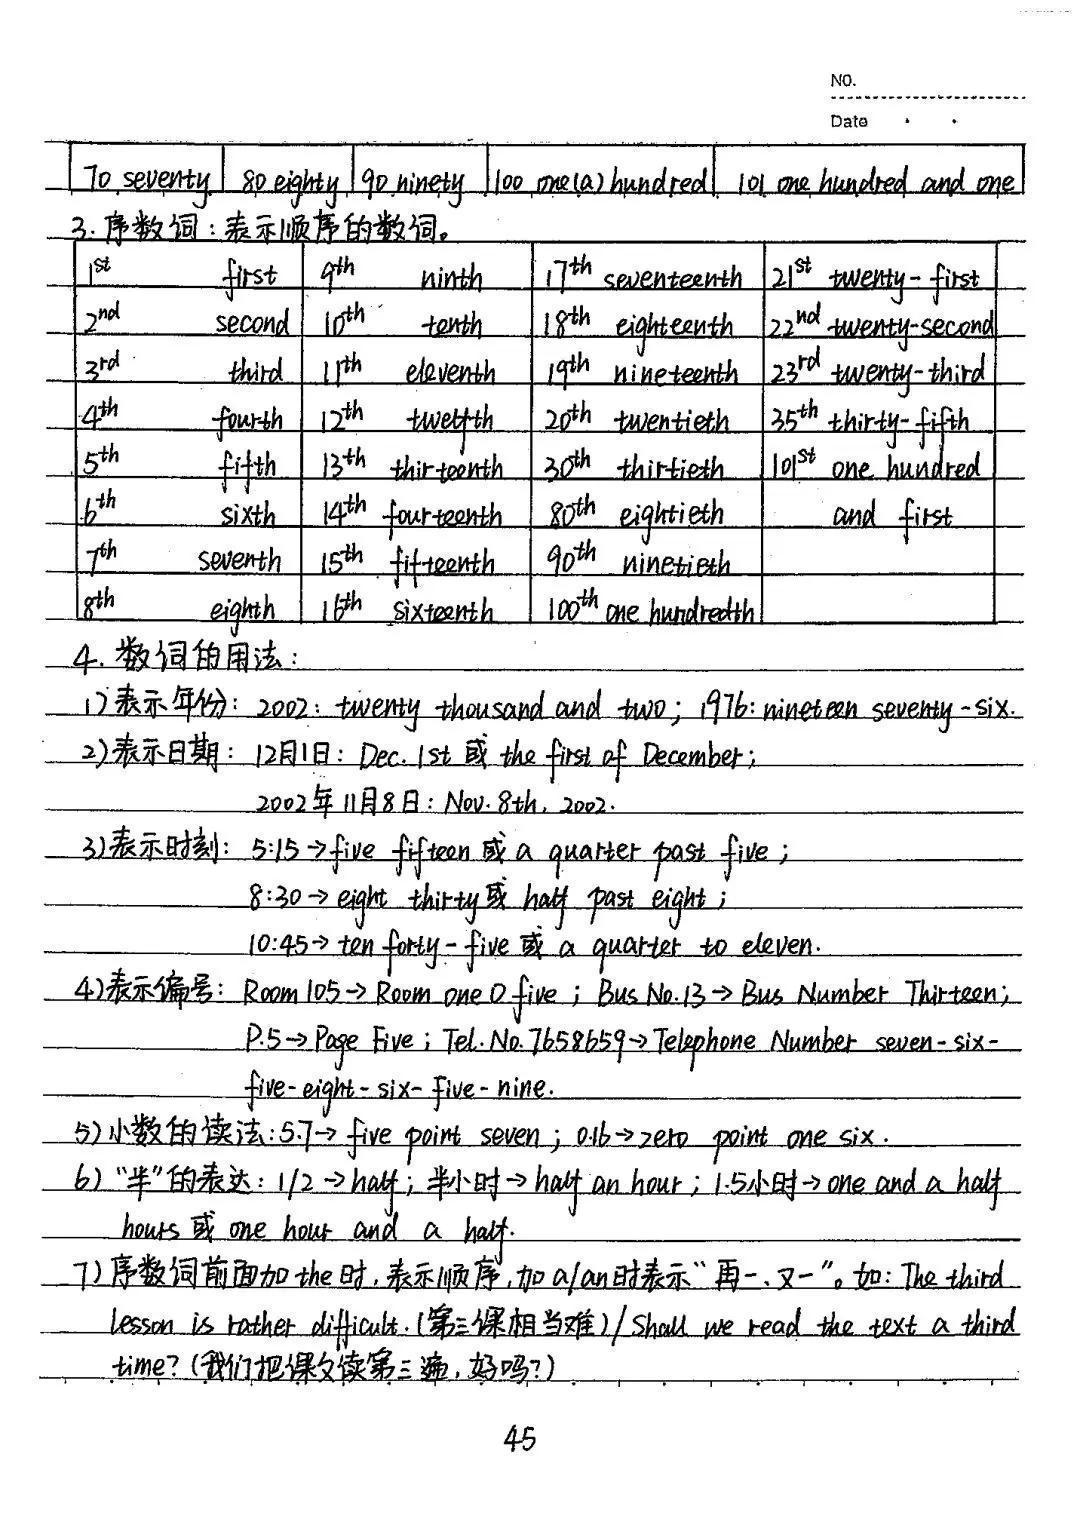 NO.
Date
70 seventy 80 eighty 90 ninety 100 one(a) hundred 101 one hundred and one
3. 序数词：表示顺序的数词。
1st first 9th ninth 17th seventeenth 21st twenty-first
2nd second 10th tenth 18th eighteenth 22nd twenty-second
3rd third 11th eleventh 19th nineteenth 23rd twenty-third
4th fourth 12th twelfth 20th twentieth 35th thirty-fifth
5th fifth 13th thirteenth 30th thirtieth 101st one hundred
6th sixth 14th fourteenth 80th eightieth and first
7th seventh 15th fifteenth 90th ninetieth
8th eighth 16th sixteenth 100th one hundredth
4. 数词的用法：
1)表示年份：2002: twenty thousand and two；1976: nineteen seventy-six.
2)表示日期：12月1日：Dec. 1st 或 the first of December；
2002年11月8日：Nov. 8th, 2002.
3)表示时刻：5:15→five fifteen 或 a quarter past five；
8:30→eight thirty 或 half past eight；
10:45→ten forty-five 或 a quarter to eleven.
4)表示编号：Room 105→Room one O five；Bus No.13→Bus Number Thirteen；
P.5→Page Five；Tel. No. 7658659→Telephone Number seven-six-
five-eight-six-five-nine.
5)小数的读法：5.7→five point seven；0.16→zero point one six.
6)“半”的表达：1/2→half；半小时→half an hour；1.5小时→one and a half
hours 或 one hour and a half.
7)序数词前面加the时，表示顺序，加a/an时表示“再一、又一”。如：The third
lesson is rather difficult.(第三课相当难)/Shall we read the text a third
time?(我们把课文读第三遍，好吗?)
45